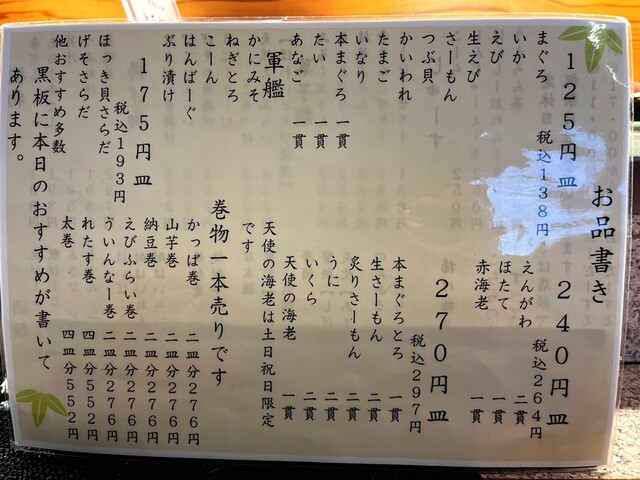 お品書き
125円皿
税込138円
まぐろ
いか
えび
生えび
さーもん
つぶ貝
かいわれ
たまご
いなり
本まぐろ 一貫
たい 一貫
あなご 一貫
軍艦
かにみそ
ねぎとろ
こーん
はんばーぐ
ぶり漬け
175円皿
税込193円
ほっき貝さらだ
げそさらだ
他おすすめ多数
240円皿
税込264円
えんがわ 二貫
ほたて 一貫
赤海老 一貫
270円皿
税込297円
本まぐろとろ 一貫
生さーもん 二貫
炙りさーもん 二貫
うに 二貫
いくら 二貫
天使の海老 一貫
天使の海老は土日祝日限定
です
巻物一本売りです
かっぱ巻 二皿分276円
山芋巻 二皿分276円
納豆巻 二皿分276円
えびふらい巻 二皿分276円
ういんなー巻 二皿分276円
れたす巻 四皿分552円
太巻 四皿分552円
黒板に本日のおすすめが書いて
あります。